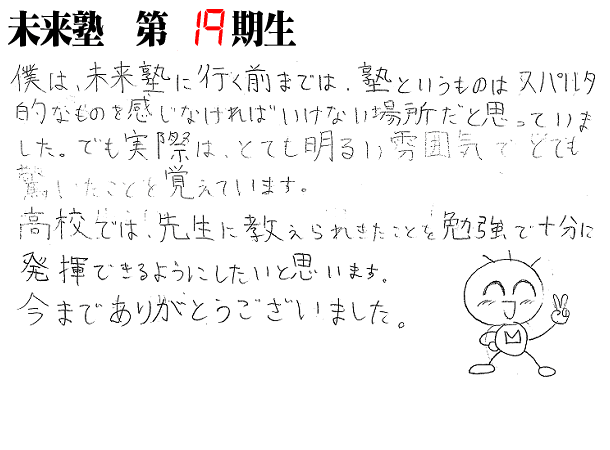 未来塾 第 19 期生
僕は、未来塾に行く前までは、塾というものはスパルタ
的なものを感じなければいけない場所だと思っていま
した。でも実際は、とても明るい雰囲気でとても
驚いたことを覚えています。
高校では、先生に教えられきたことを勉強で十分に
発揮できるようにしたいと思います。
今までありがとうございました。
M